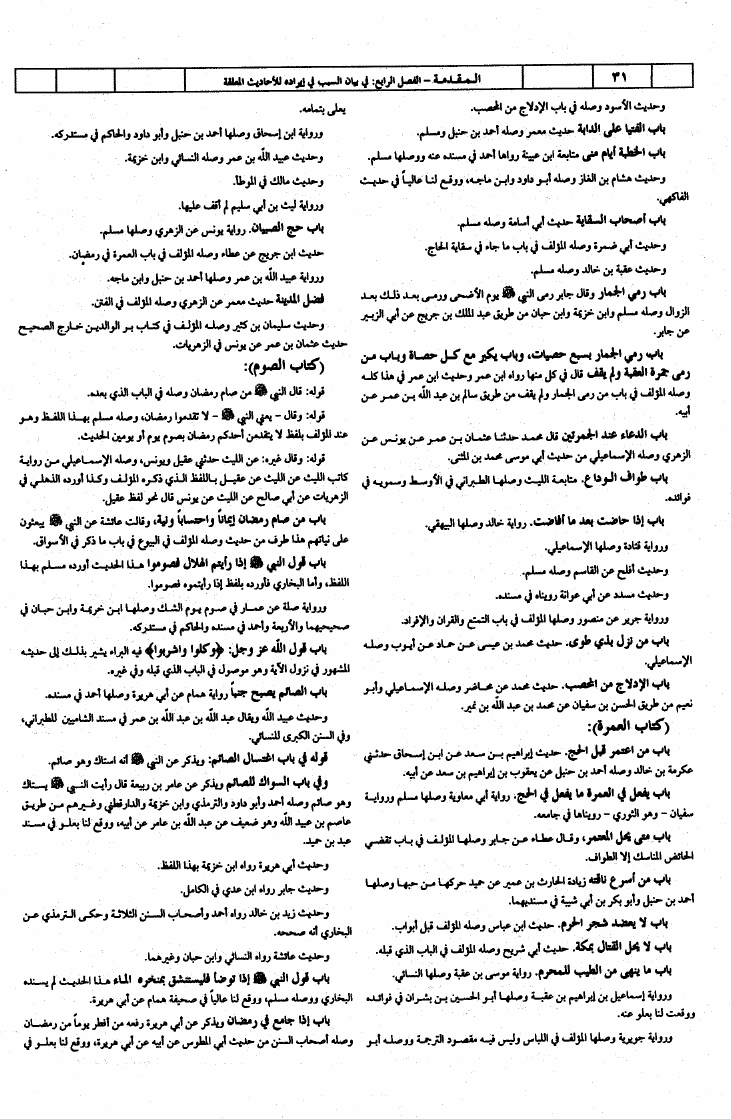 ٣١
المقدمة – الفصل الرابع: في بيان السبب في إيراده للأحاديث المعلقة
وحديث الأسود وصله في باب الإدلاج من المحصب.
باب الفتيا على الدابة حديث معمر وصله أحمد بن حنبل ومسلم.
باب الخطبة أيام منى متابعة ابن عيينة رواها أحمد في مسنده عنه ووصلها مسلم.
وحديث هشام بن الغاز وصله أبو داود وابن ماجه، ووقع لنا عالياً في حديث
الفاكهي.
باب أصحاب السقاية حديث أبي أسامة وصله مسلم.
وحديث أبي ضمرة وصله المؤلف في باب ما جاء في سقاية الحاج.
وحديث عقبة بن خالد وصله مسلم.
باب رمي الجمار وقال جابر رمى النبي ﷺ يوم الأضحى ورمى بعد ذلك بعد
الزوال وصله مسلم وابن خزيمة وابن حبان من طريق عبد الملك بن جريج عن أبي الزبير
عن جابر.
باب رمي الجمار بسبع حصيات، وباب يكبر مع كل حصاة وباب من
رمى جمرة العقبة ولم يقف قال في كل منها رواه ابن عمر وحديث ابن عمر في هذا كله
وصله المؤلف في باب من رمى الجمار ولم يقف من طريق سالم بن عبد الله بن عمر عن
أبيه.
باب الدعاء عند الجمرتين قال محمد حدثنا عثمان بن عمر عن يونس عن
الزهري وصله الإسماعيلي من حديث أبي موسى محمد بن المثنى.
باب طواف الوداع. متابعة الليث وصلها الطبراني في الأوسط وسمويه في
فوائده.
باب إذا حاضت بعد ما أفاضت. رواية خالد وصلها البيهقي.
ورواية قتادة وصلها الإسماعيلي.
وحديث أفلح عن القاسم وصله مسلم.
وحديث مسدد عن أبي عوانة رويناه في مسنده.
ورواية جرير عن منصور وصلها المؤلف في باب التمتع والقران والإفراد.
باب من نزل بذي طوى. حديث محمد بن عيسى عن حماد عن أيوب وصله
الإسماعيلي.
باب الإدلاج من المحصب. حديث محمد عن محاضر وصله الإسماعيلي وأبو
نعيم من طريق الحسن بن سفيان عن محمد بن عبد الله بن نمير.
(كتاب العمرة):
باب من اعتمر قبل الحج. حديث إبراهيم بن سعد عن ابن إسحاق حدثني
عكرمة بن خالد وصله أحمد بن حنبل عن يعقوب بن إبراهيم بن سعد عن أبيه.
باب يفعل في العمرة ما يفعل في الحج. رواية أبي معاوية وصلها مسلم ورواية
سفيان – وهو الثوري – رويناها في جامعه.
باب متى يحل المعتمر، وقال عطاء عن جابر وصلها المؤلف في باب تقضي
الحائض المناسك إلا الطواف.
باب من أسرع ناقته زيادة الحارث بن عمير عن حميد حركها من حبها وصلها
أحمد بن حنبل وأبو بكر بن أبي شيبة في مسنديهما.
باب لا يعضد شجر الحرم. حديث ابن عباس وصله المؤلف قبل أبواب.
باب لا يحل القتال بمكة. حديث أبي شريح وصله المؤلف في الباب الذي قبله.
باب ما ينهى من الطيب للمحرم. رواية موسى بن عقبة وصلها النسائي.
ورواية إسماعيل بن إبراهيم بن عقبة وصلها أبو الحسين بن بشران في فوائده
ووقعت لنا بعلو عنه.
ورواية جويرية وصلها المؤلف في اللباس وليس فيه مقصود الترجمة ووصله أبو
يعلى بتمامه.
ورواية ابن إسحاق وصلها أحمد بن حنبل وأبو داود والحاكم في مستدركه.
وحديث عبيد الله بن عمر وصله النسائي وابن خزيمة.
وحديث مالك في الموطأ.
ورواية ليث بن أبي سليم لم أقف عليها.
باب حج الصبيان. رواية يونس عن الزهري وصلها مسلم.
حديث ابن جريج عن عطاء وصله المؤلف في باب العمرة في رمضان.
ورواية عبيد الله بن عمر وصلها أحمد بن حنبل وابن ماجه.
فضل المدينة حديث معمر عن الزهري وصله المؤلف في الفتن.
وحديث سليمان بن كثير وصله المؤلف في كتاب بر الوالدين خارج الصحيح
حديث عثمان بن عمر عن يونس في الزهريات.
(كتاب الصوم):
قوله: قال النبي ﷺ من صام رمضان وصله في الباب الذي بعده.
قوله: وقال – يعني النبي ﷺ – لا تقدموا رمضان، وصله مسلم بهذا اللفظ وهو
عند المؤلف بلفظ لا يتقدمن أحدكم رمضان بصوم يوم أو يومين الحديث.
قوله: وقال غيره: عن الليث حدثني عقيل ويونس، وصله الإسماعيلي من رواية
كاتب الليث عن الليث عن عقيل باللفظ الذي ذكره المؤلف وكذا أورده الذهلي في
الزهريات عن أبي صالح عن الليث عن يونس قال نحو لفظ عقيل.
باب من صام رمضان إيماناً واحتساباً ونية، وقالت عائشة عن النبي ﷺ يبعثون
على نياتهم هذا طرف من حديث وصله المؤلف في البيوع في باب ما ذكر في الأسواق.
باب قول النبي ﷺ إذا رأيتم الهلال فصوموا هذا الحديث أورده مسلم بهذا
اللفظ، وأما البخاري فأورده بلفظ إذا رأيتموه فصوموا.
ورواية صلة عن عمار في صوم يوم الشك وصلها ابن خزيمة وابن حبان في
صحيحيهما والأربعة وأحمد في مسنده والحاكم في مستدركه.
باب قول الله عز وجل: ﴿وكلوا واشربوا﴾ فيه البراء يشير بذلك إلى حديثه
المشهور في نزول الآية وهو موصول في الباب الذي قبله وفي غيره.
باب الصائم يصبح جنباً رواية همام عن أبي هريرة وصلها أحمد في مسنده.
وحديث عبيد الله ويقال عبد الله بن عبد الله بن عمر في مسند الشاميين للطبراني،
وفي السنن الكبرى للنسائي.
قوله في باب اغتسال الصائم: ويذكر عن النبي ﷺ أنه استاك وهو صائم.
وفي باب السواك للصائم ويذكر عن عامر بن ربيعة قال رأيت النبي ﷺ يستاك
وهو صائم وصله أحمد وأبو داود والترمذي وابن خزيمة والدارقطني وغيرهم من طريق
عاصم بن عبيد الله وهو ضعيف عن عبد الله بن عامر عن أبيه، ووقع لنا بعلو في مسند
عبد بن حميد.
وحديث أبي هريرة رواه ابن خزيمة بهذا اللفظ.
وحديث جابر رواه ابن عدي في الكامل.
وحديث زيد بن خالد رواه أحمد وأصحاب السنن الثلاثة وحكى الترمذي عن
البخاري أنه صححه.
وحديث عائشة رواه النسائي وابن حبان وغيرهما.
باب قول النبي ﷺ إذا توضأ فليستنشق بمنخره الماء هذا الحديث لم يسنده
البخاري ووصله مسلم، ووقع لنا عالياً في صحيفة همام عن أبي هريرة.
باب إذا جامع في رمضان ويذكر عن أبي هريرة رفعه من أفطر يوماً من رمضان
وصله أصحاب السنن من حديث أبي المطوس عن أبيه عن أبي هريرة، ووقع لنا بعلو في